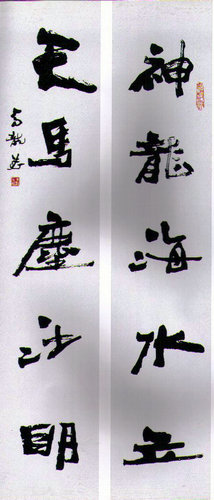 神龍海水立
天馬塵沙明